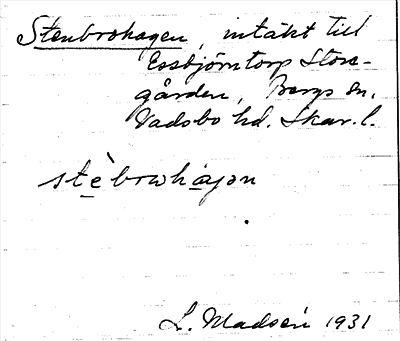 Stenbrohagen, intäkt till
Essbjörntorp Stora-
gården, Bergs sn.
Vadsbo hd. Skar. l.
stèbrωhaɡən
L. Madsén 1931